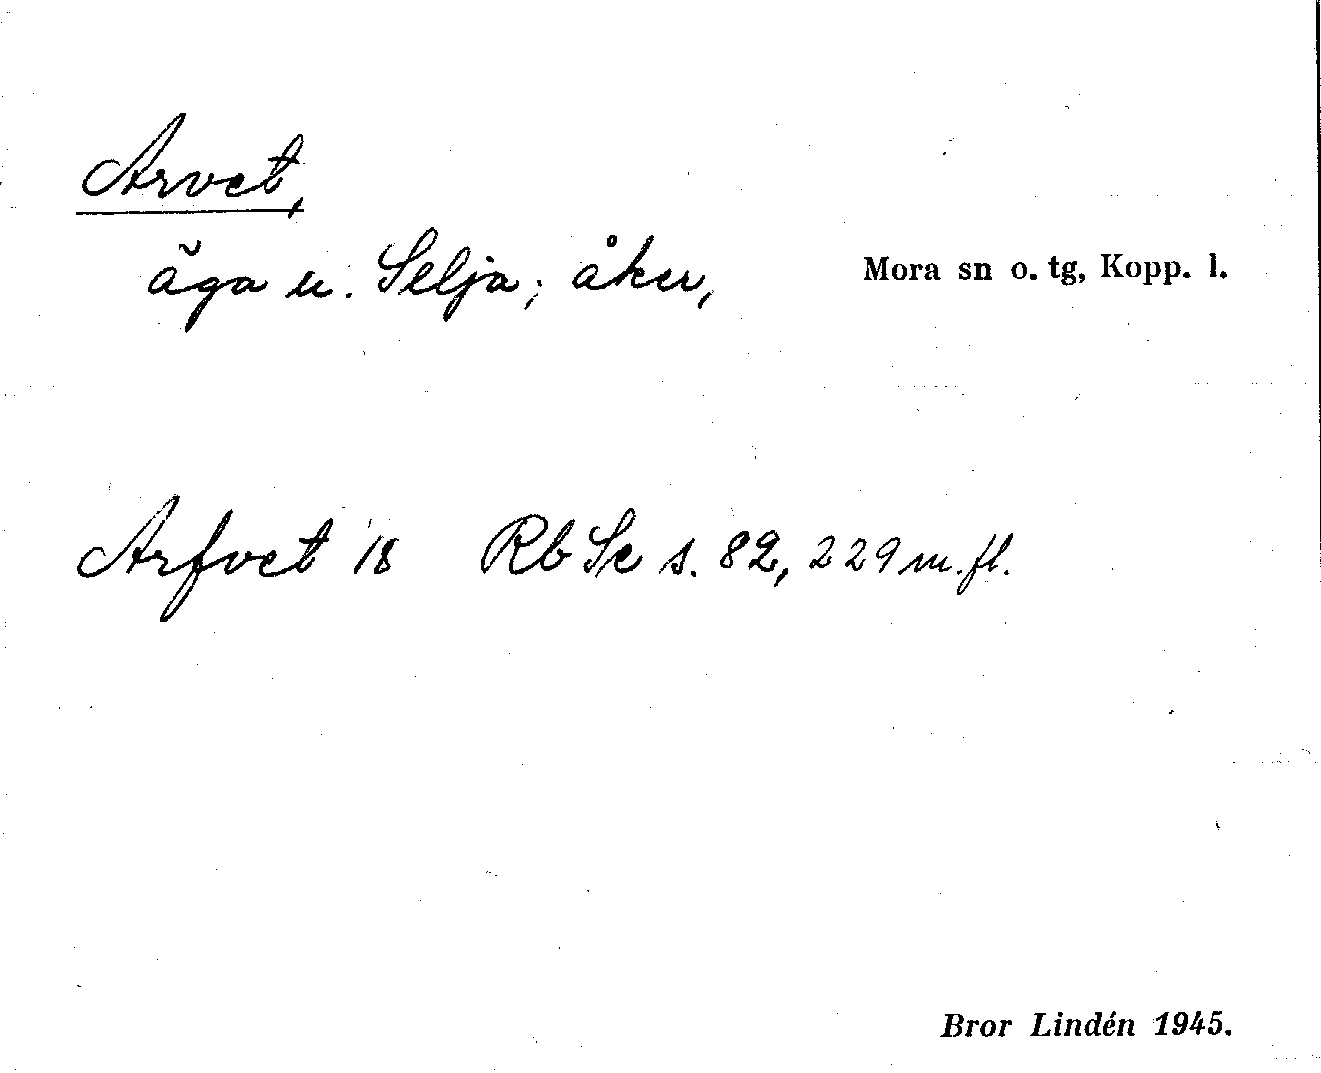 Arvet,
äga u. Selja; åker,
Mora sn o. tg, Kopp. l.
Arfvet 18 Rb Se s. 82, 229 m.fl.
Bror Lindén 1945.